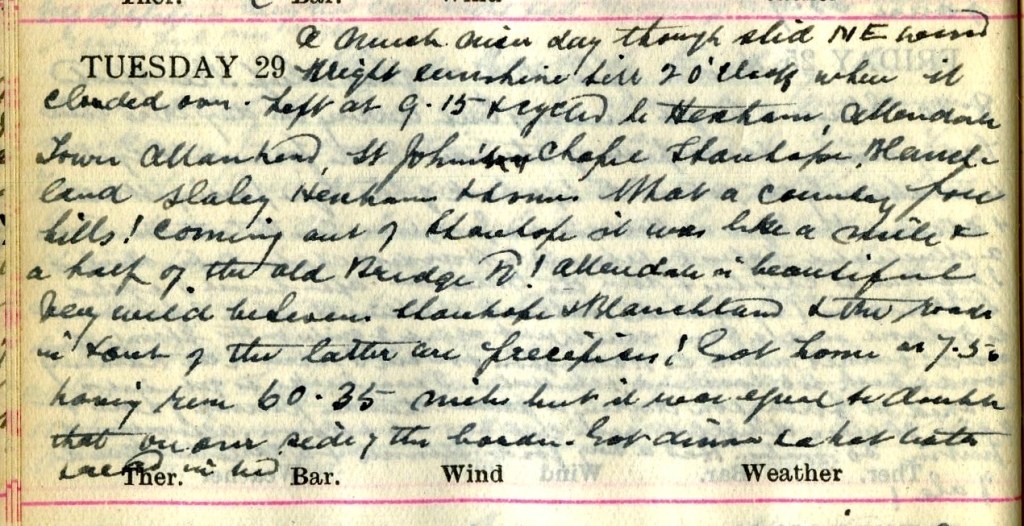 Ther. Bar. Wind
A much nicer day though still NE wind
TUESDAY 29 Bright sunshine till 2 o'clock when it
clouded over. Left at 9.15 & cycled to Hexham, Allendale
Town Allenhead, St John's Chapel Stanhope, Blanch-
land Slaley Hexham & home. What a country for
hills! Coming out of Stanhope it was like a mile &
a half of the old Bridge St! Allendale is beautiful
Very wild between Stanhope & Blanchland & the roads
in & out of the latter are precipices! Got home at 7.50
having run 60.35 miles but it was equal to double
that on our side of the border. Got dinner & a hot bath
in bed
Ther. Bar. Wind Weather